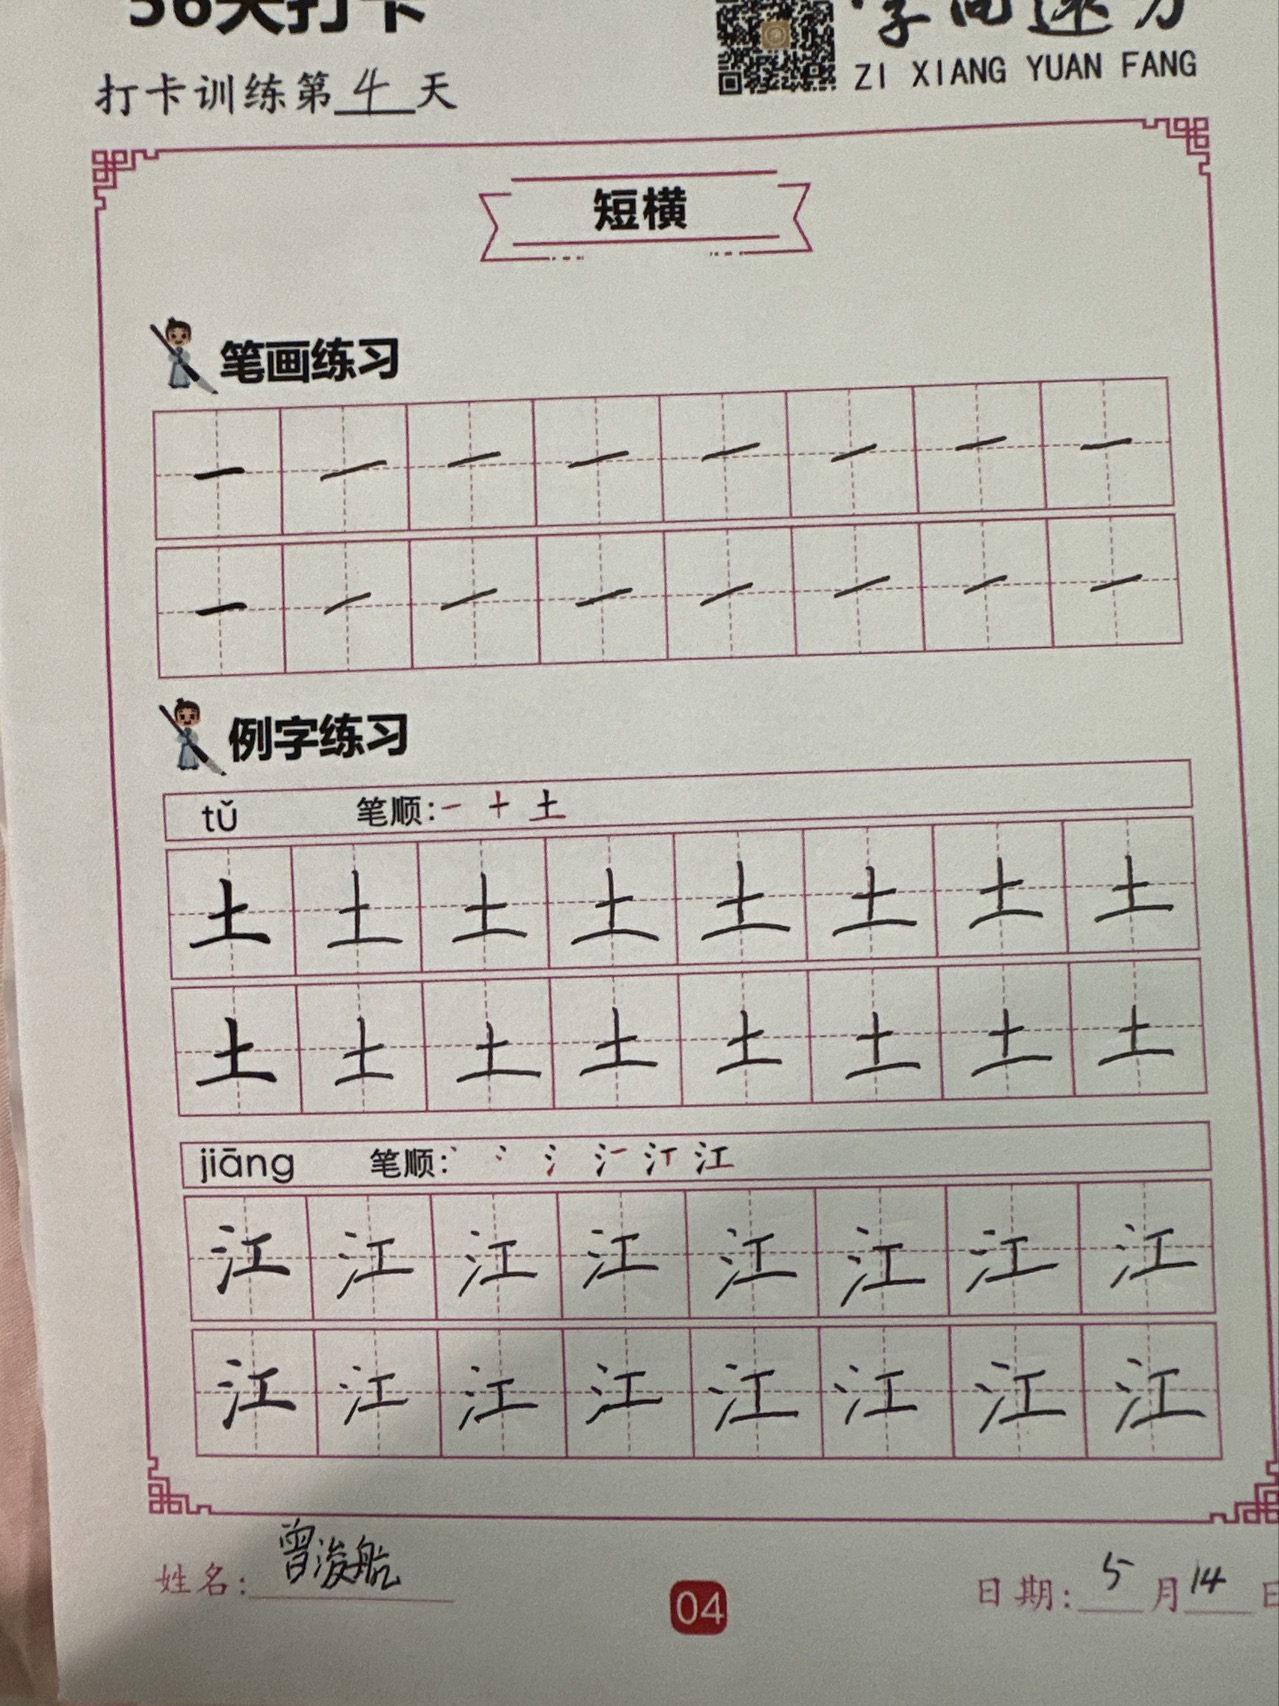 56天打卡
字向远方
ZI XIANG YUAN FANG
打卡训练第4天
短横
笔画练习
一 一 一 一 一 一 一 一
一 一 一 一 一 一 一 一
例字练习
tǔ 笔顺: 一 十 土
土 土 土 土 土 土 土 土
土 土 土 土 土 土 土 土
jiāng 笔顺: 江
江 江 江 江 江 江 江 江
江 江 江 江 江 江 江 江
姓名: 曾浚航
04
日期: 5月14日